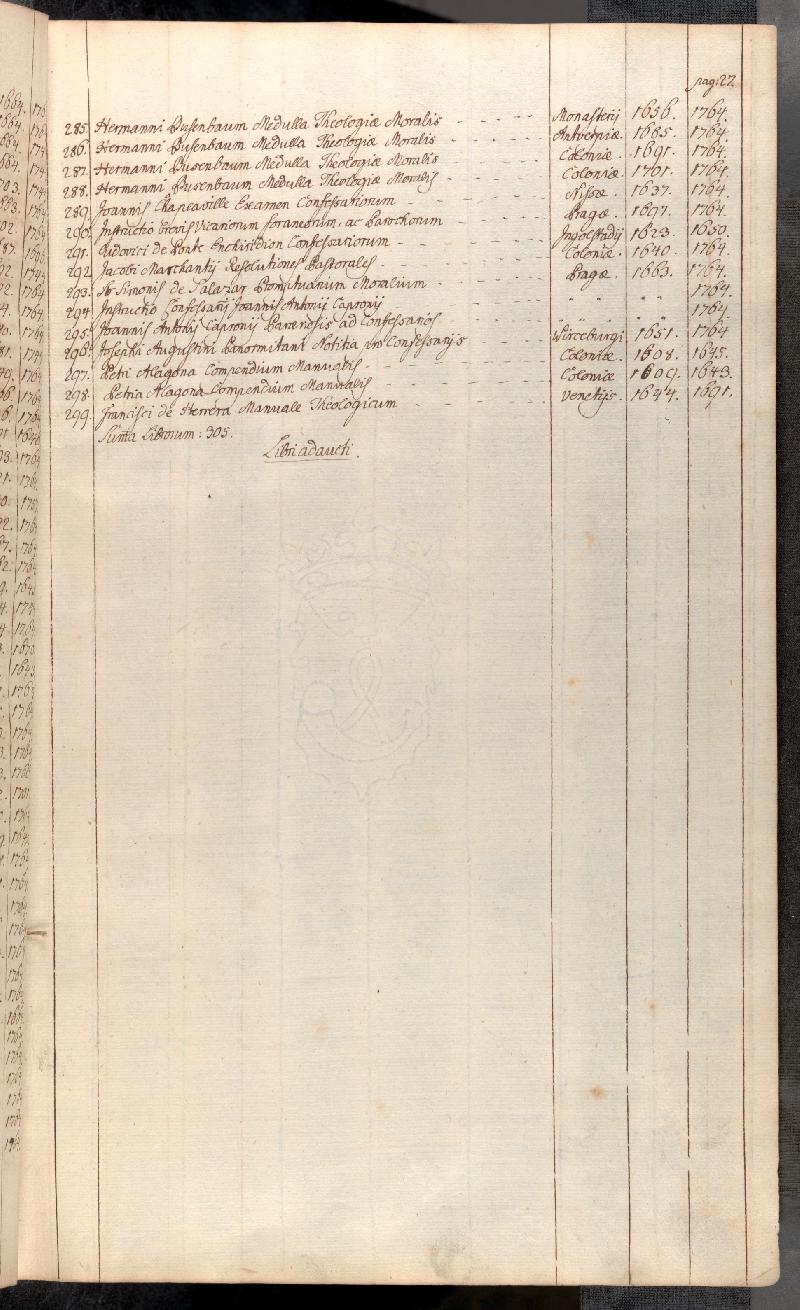 pag: 27.
285. Hermanni Busenbaum Medulla Theologiæ Moralis - - - - Monasterij 1656. 1764.
286. Hermanni Busenbaum Medulla Theologiæ Moralis - - - - Antverpiæ. 1685. 1764.
287. Hermanni Busenbaum Medulla Theologiæ Moralis - - - - Coloniæ. 1691. 1764.
288. Hermanni Busenbaum Medulla Theologiæ Moralis - - - - Coloniæ. 1701. 1764.
289. Joannis Chapeaville Examen Confessariorum - - - - Nissæ. 1637. 1764.
290. Instructio brevis Vicariorum foraneorum, ac Parochorum - - - - Pragæ. 1697. 1764.
291. Ludovici de Ponte Enchiridion Confessariorum - - - - Ingolstadij 1623. 1650.
292. Jacobi Marchantij Resolutiones Pastorales - - - - Coloniæ. 1640. 1764.
293. Simonis de Salazar Promptuarium Moralium - - - - Pragæ. 1663. 1764.
294. Instructio Confessarij Joannis Antonij Capronij - - - - " " " " 1764.
295. Joannis Antonij Capronij Parænesis ad Confessarios - - - - " " " " 1764
296. Josephi Augustini Panormitani Notitia pro Confessarijs - - - - Wirceburgi 1651. 1764
297. Petri Alagona Compendium Manualis - - - - Coloniæ. 1608. 1645.
298. Petri Alagona Compendium Manualis - - - - Coloniæ 1609. 1643.
299. Francisci de Herrera Manuale Theologicum - - - - Venetijs. 1644. 1691.
Suma Librorum: 305.
Libri adaucti.